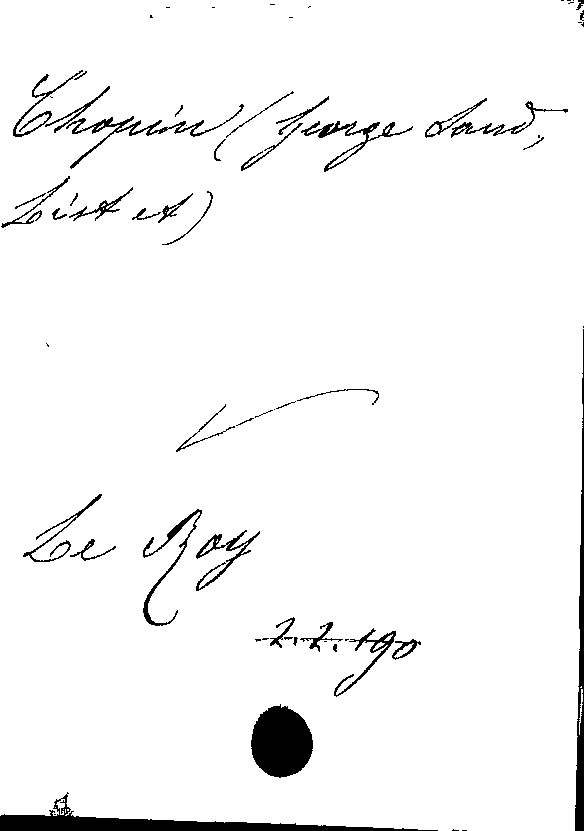 Chopin (George Sand,
List et)
Le Roy
2.2.190